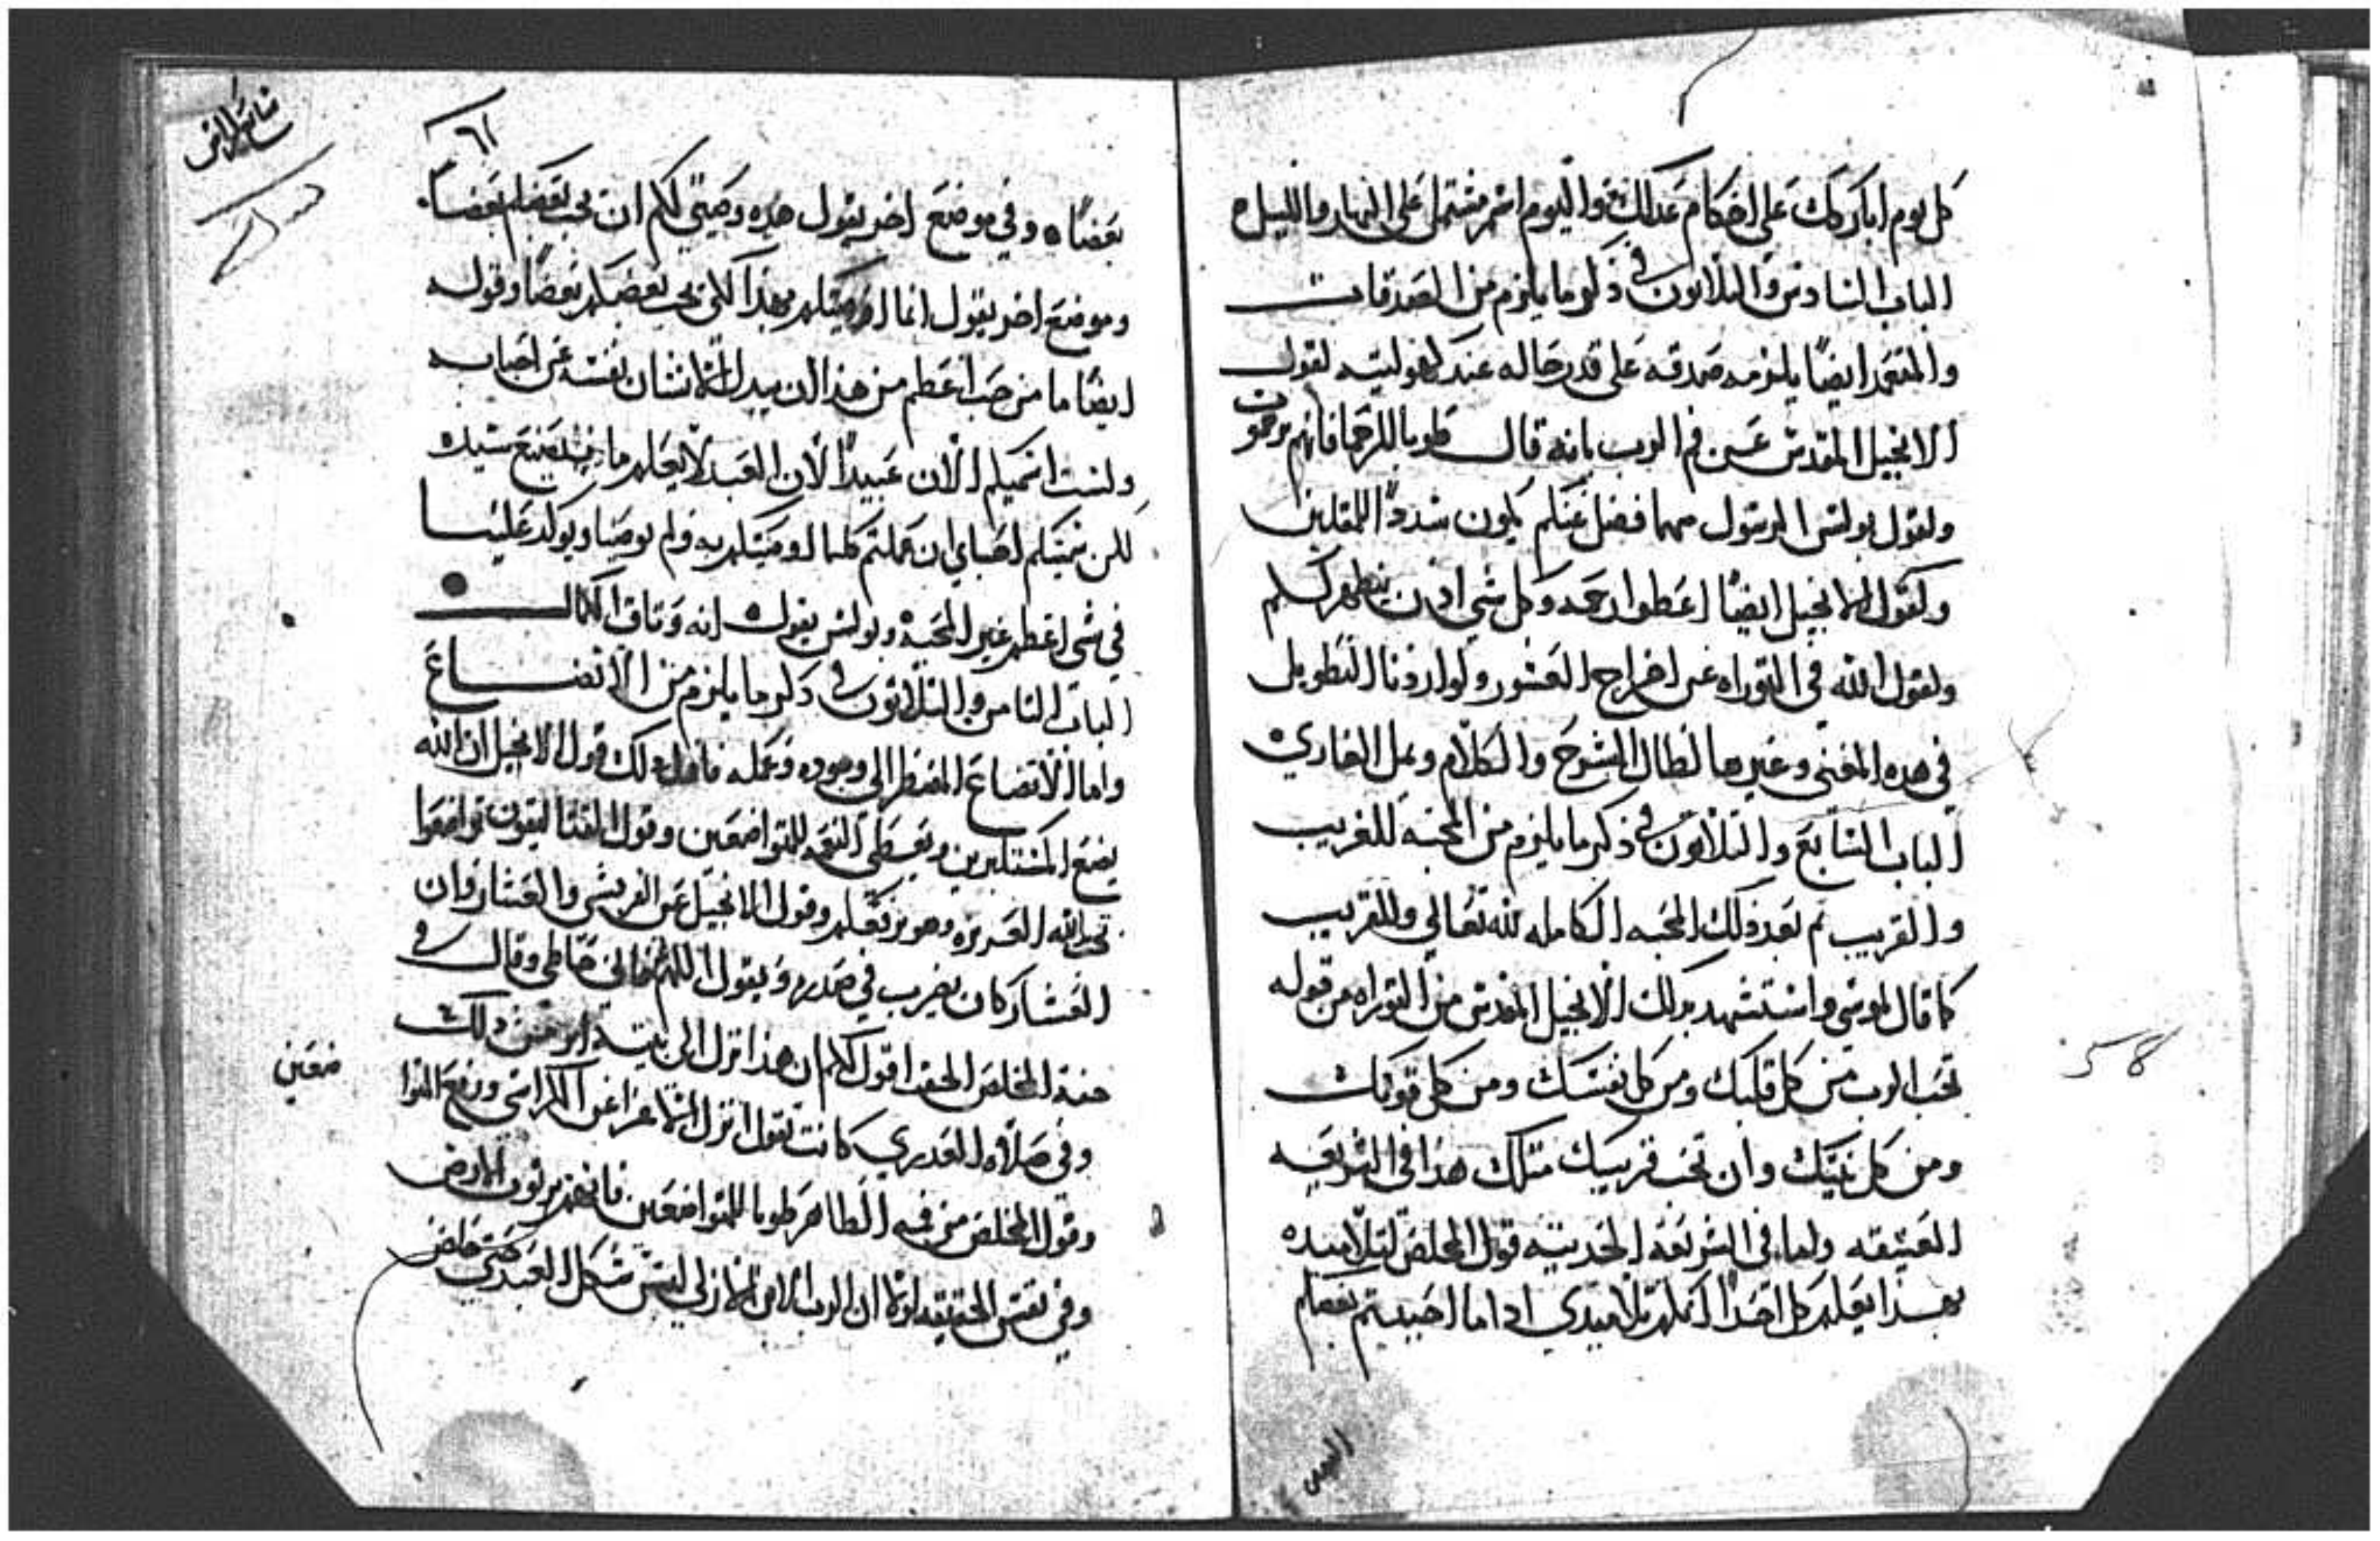 كل يوم اباركك على احكام عدلك واليوم اسم مشتمل على النهار والليل
الباب السادس والتلاتون في ذكر ما يلزم من الصدقات
والمتعمد ايضًا يلزمه صدقه على قدر حاله عند لقول
الانجيل المقدس عن فم الرب بانه قال طوبا للرحما فانهم يرحمون
ولقول بولس الرسول مهما فضل عنكم يكون سدادًا للمقلين
ولقول الانجيل ايضًا اعطوا رحمه وكل شي يتطهر لكم
ولقول الله في التوراه عن اخراج العشور ولو اردنا التطويل
في هده المعني وغيرها لطال الشرح والكلام ويمل القاري
الباب السابع والتلاتون في ذكر ما يلزم من المحبه للغريب
والقريب تم بعد ذلك المحبه الكامله لله تعالي وللقريب
كما قال لموسي واستشهد بدلك الانجيل المقدس من التوراه من قوله
تحب الرب من كل قلبك ومن كل نفسك ومن كل قوتك
ومن كل نيتك وان تحب قريبك متلك هذا في الشريعه
العتيقه واما في الشريعه الحديته قول المخلص لتلاميده
بهذا يعلم كل احدًا انكم تلاميدي ادا ما احببتم بعضكم
٦١
بعضًا وفي موضع اخر يقول هده وصيتي لكم ان يحب بعضكم بعضًا
وموضع اخر يقول انما اوصيتكم بهذا لكي يحب بعضكم بعضًا وقوله
ايضًا ما من حب اعظم من هذا ان يبدل الانسان نفسه عن احبابه
ولست اسميكم الان عبيدًا لان العبد لا يعلم ما يصنع سيده
لكن سميتكم احباي ان عملتم كلما اوصيتكم به ولم يوصينا ويوكد علينا
في شي اعظم غير المحبه وبولس يقول انه وتاق الكمال
الباب التامن والتلاتون في دكر ما يلزم من الاتضاع
واما الاتضاع المضطر الي وجوده وعمله دلك قول الانجيل ان الله
يضع المستكبرين ويعطي النعمه للمتواضعين وقول القتاليقون تواضعوا
تحت يد الله العزيزه وهو يرفعكم وقول الانجيل عن الفريسي والعشار وان
العشار كان يضرب في صدره ويقول اللهم خاطي وقال في
المخلص الحق اقول لكم ان هذا نزل الي بيته ابر من دلك
وفي صلاه العدري كانت تقول انزل الاعزا عن الكراسي ورفع المتوا
ضعين
وقول المخلص من فمه الطاهر طوبا للمتواضعين فانهم يرتون الارض
وفي نفس الحقيقه لولا ان الرب الازلي لبس شكل العبد حتي خلص
58